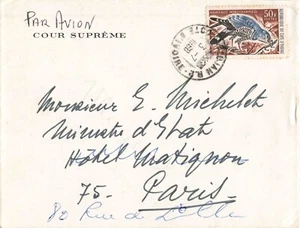 PAR AVION
COUR SUPRÊME
50F
Monsieur E. Michelet
Ministre d'Etat
Hôtel Matignon
75 - Paris
80 Rue de Lille